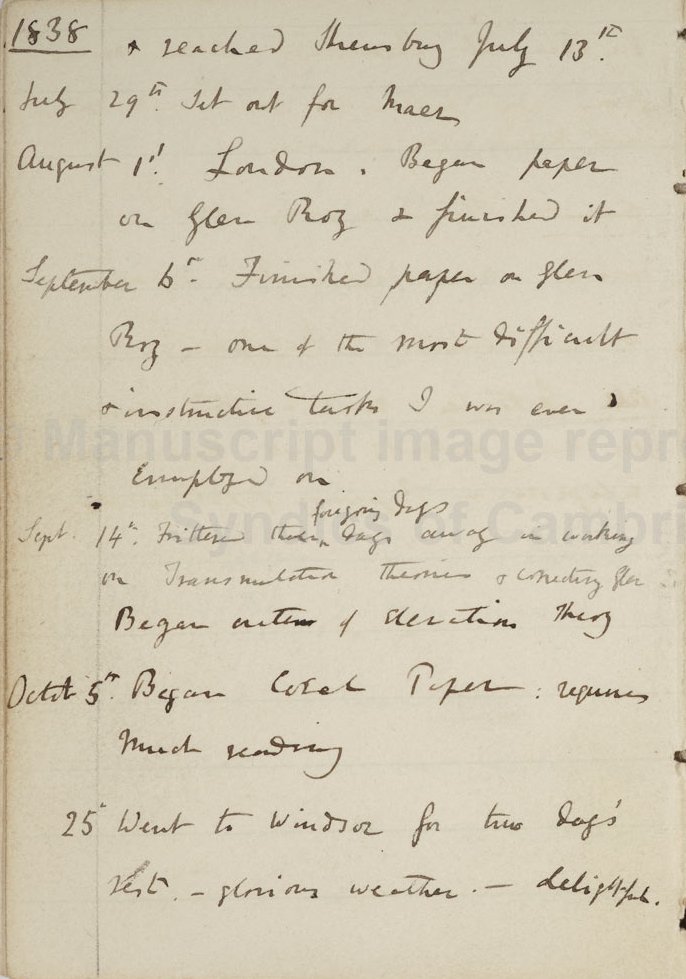 1838
& reached Shrewsbury July 13th.
July 29th. Set out for Maer
August 1st. London. Began paper
on Glen Roy & finished it
September 6th. Finished paper on Glen
Roy – one of the most difficult
& instructive tasks I was ever
employed on
foregoing days
Sept. 14th. Frittered these days away in working
on Transmutation theories & correcting Glen
Began outline of Elevation Theory
Octob 5th. Began Coral Paper: requires
much reading
25th Went to Windsor for two days'
rest. – glorious weather. – delightful.
Manuscript image repr
Syndics of Cambri